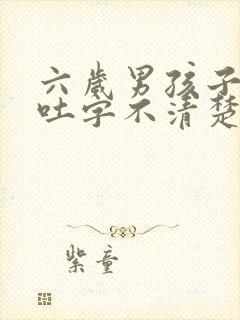 六岁男孩子
吐字不清楚
紫童